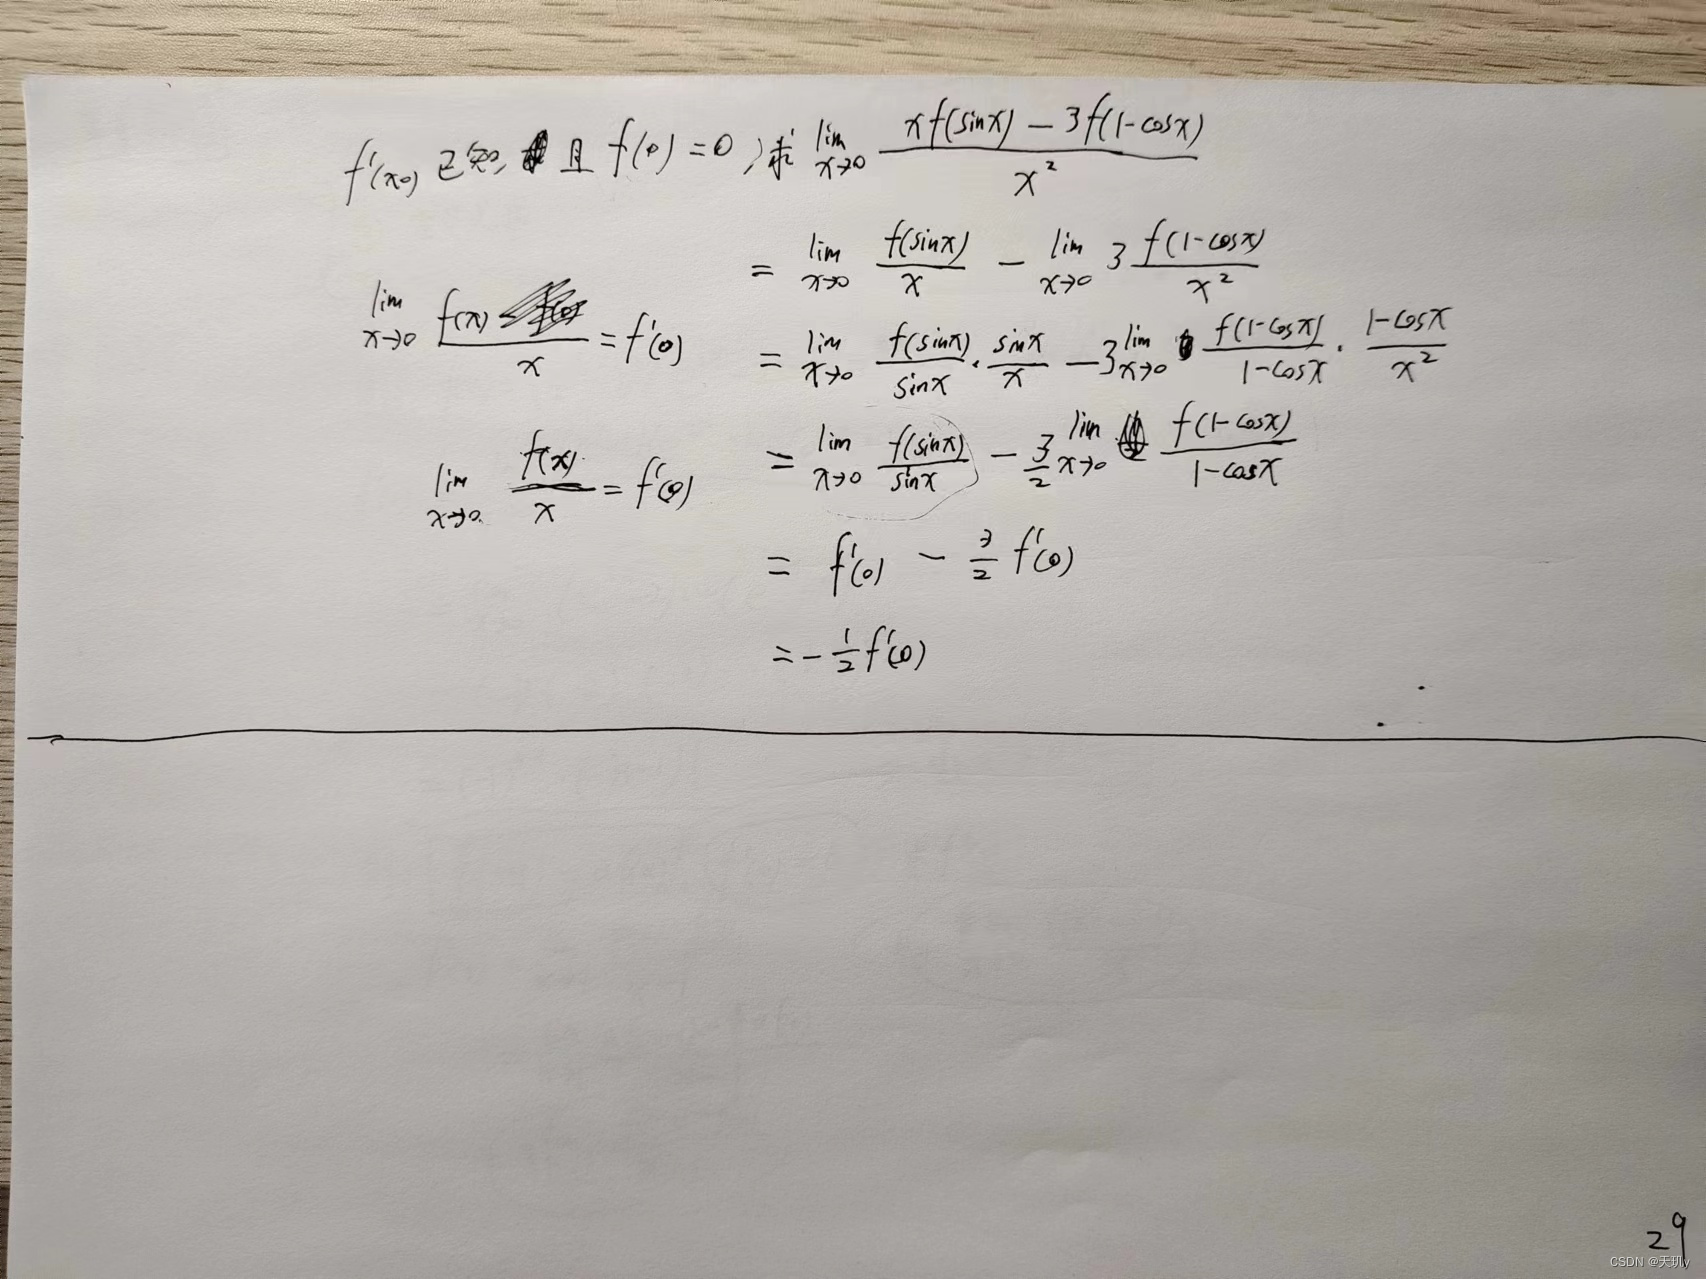 f'(x0) 已知, 且 f(0)=0, 求 lim x→0 (xf(sinx) - 3f(1-cosx)) / x²
= lim x→0 f(sinx)/x - lim x→0 3 f(1-cosx)/x²
lim x→0 f(x)/x = f'(0)
= lim x→0 f(sinx)/sinx · sinx/x - 3 lim x→0 f(1-cosx)/(1-cosx) · (1-cosx)/x²
lim x→0 f(x)/x = f'(0)
= lim x→0 f(sinx)/sinx - 3/2 lim x→0 f(1-cosx)/(1-cosx)
= f'(0) - 3/2 f'(0)
= - 1/2 f'(0)
29
CSDN @天玑y